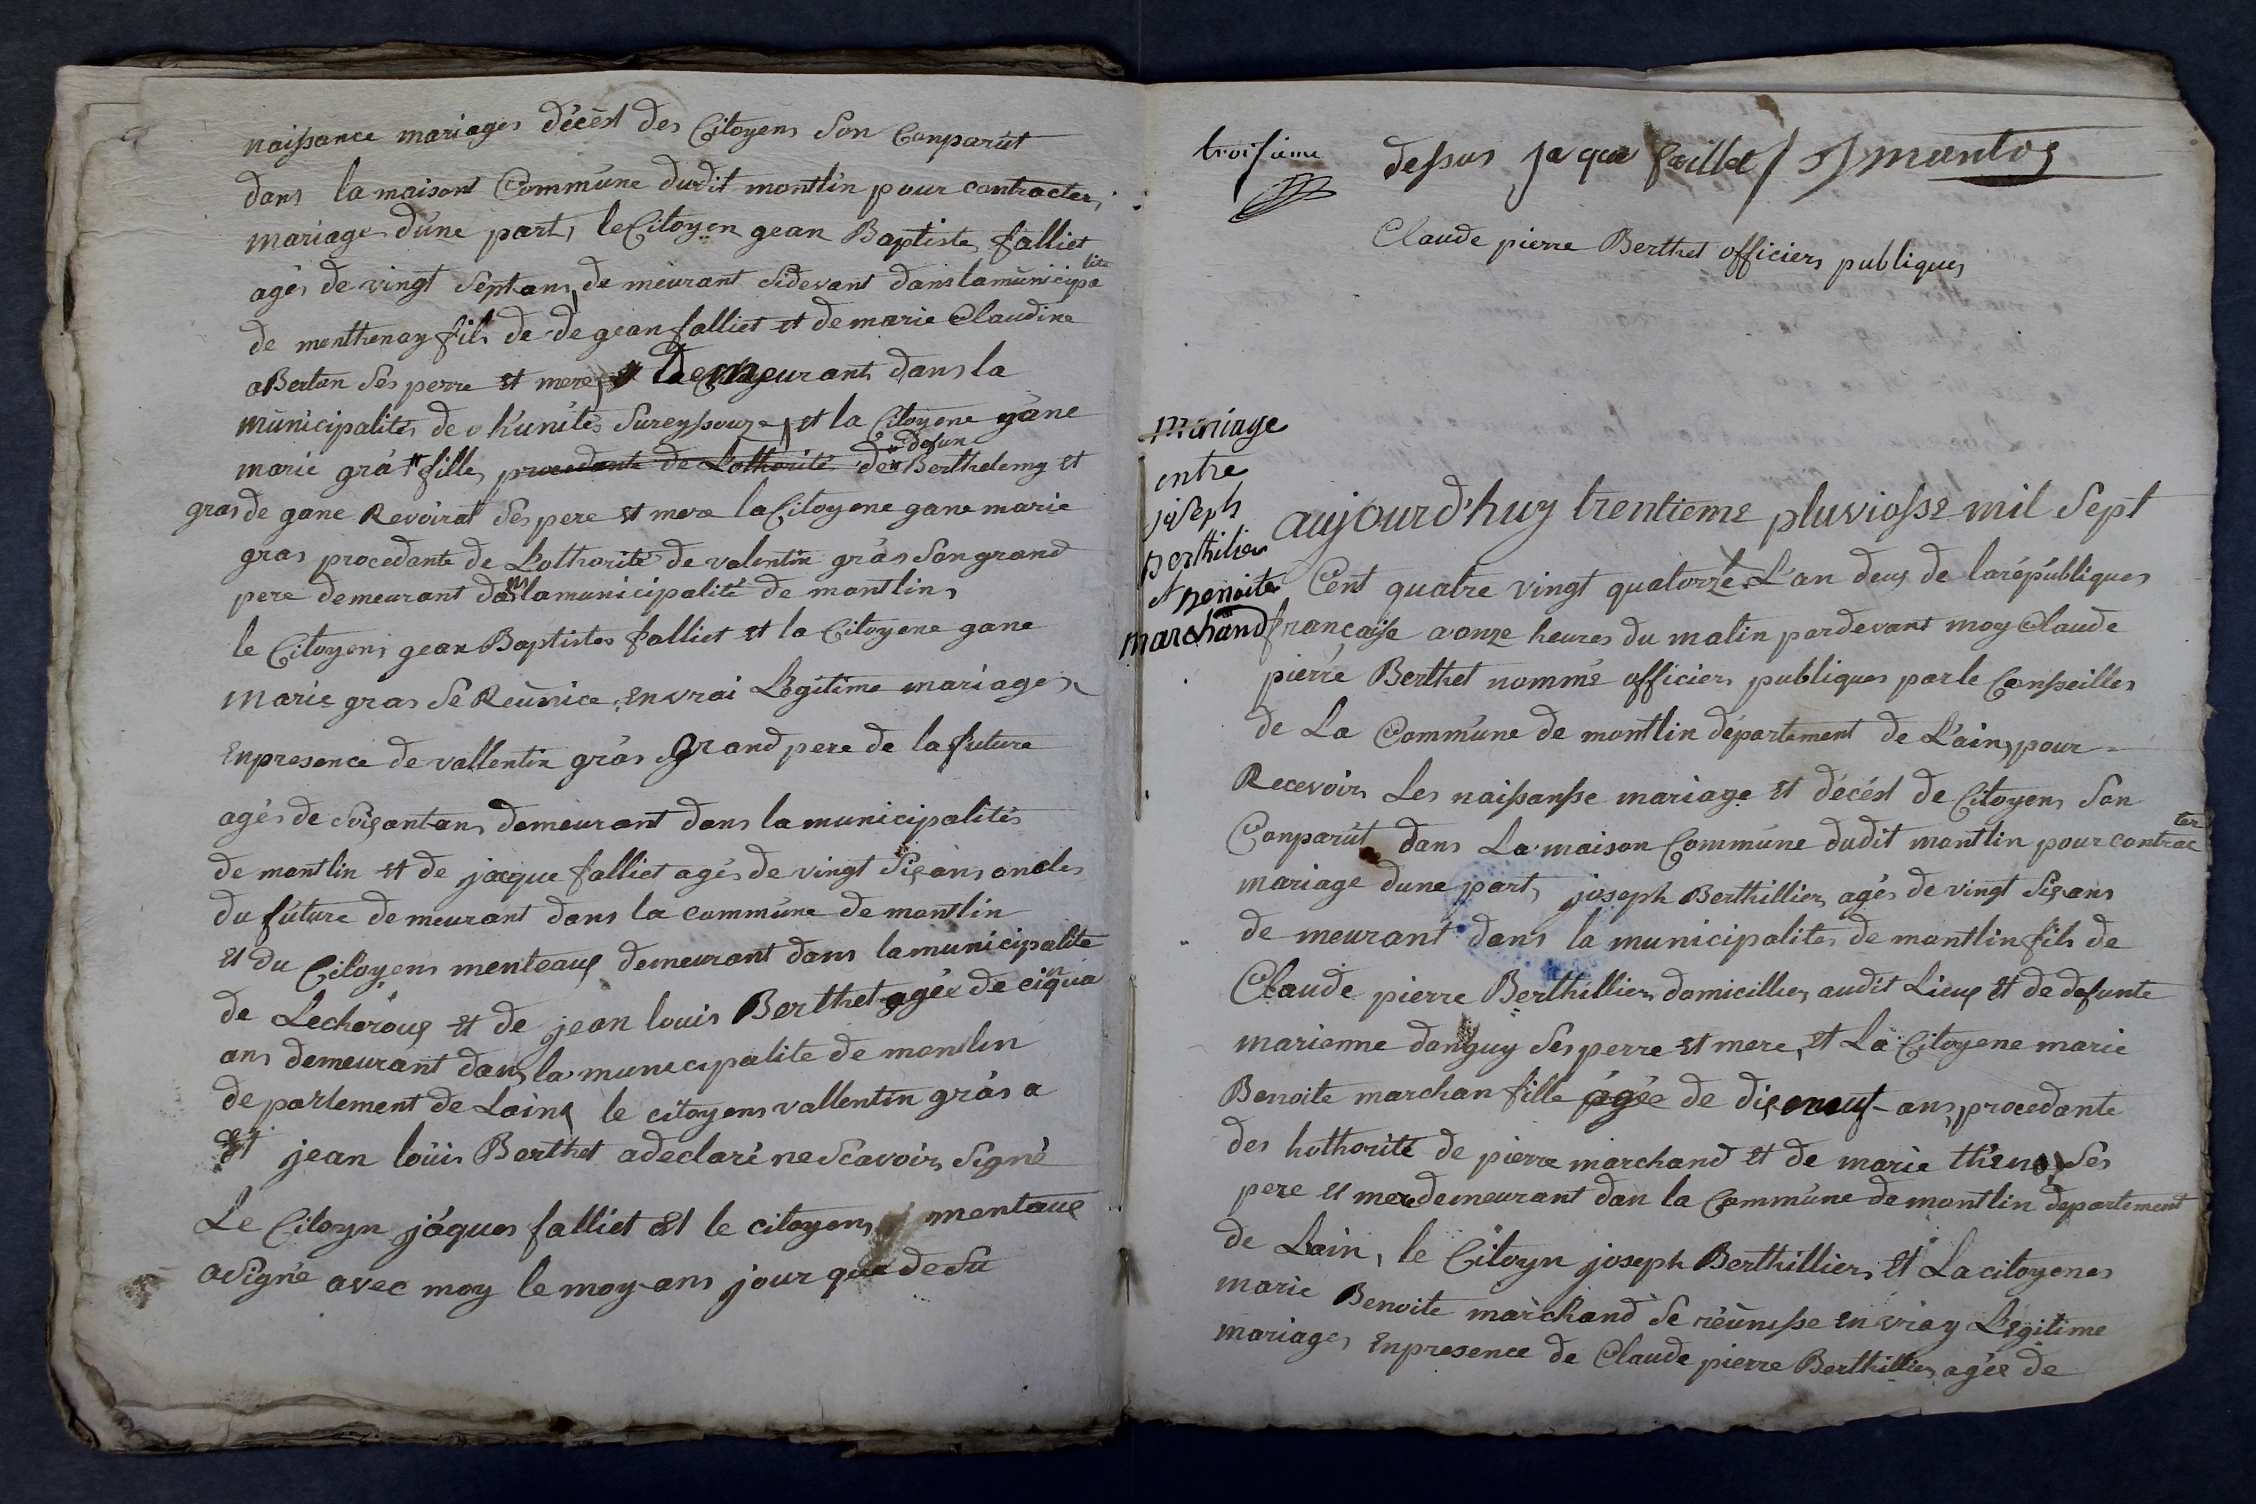 naissance mariages décèst des Citoyens Son Conparût
dans la maisont Commúne dudit montlin pour contracter
mariages d'úne part, le Citoyen gean Baptiste falliet
agés de vingt Septans de meurant Sidevant dans la municipa lité
de menthenay fils de de gean falliet et de marie Claudine
aBertan Ses perre et mere Demeurant dans la
múnicipalités de Sureyssouze, et la Citoyene gâne
marie grá fille procedante de Lothorité de defun Berthelemy et
gras de gane Revoirat Ses pere et mere la Citoyene gane marie
gras procedante de Lothorité de valentin grás Son grand
pere demeurant dans la municipalité de montlin
le Citoyens gean Baptistes falliet et la Citoyene gane
marie gras Se Reunice en vrai Legitime mariages
En presence de vallentin grás grand pere de la future
agés de Soiçantans demeurant dans la municipalités
de montlin et de jacque falliet agés de vingt Siçans oncles
du fúture de meurant dans la commúne de montlin
et du Citoyens menteaux demeurant dans la municipalite
de Lecheroux et de jean louis Berthet agée de cinqua
ans demeurant dans la munecipalite de montlin
de partement de Lain le citoyens vallentin grás a
Et jean loüis Berthet a declaré ne Scavoir Signé
Le Citoyn jáques falliet Et le citoyens mentaux
a Signé avec moy le moy ans jour que de Su
troisieme
dessus jaque faillet J mantos
Claude pierre Berthet officiers publiques
mariage
entre
joseph
berthilier
et benoite
marchand
aujourd'huy trentieme pluviosse mil Sept
Cent quatre vingt quatorze L'an deux de la républiques
françaisse a onze heures du matin pardevant moy Claude
pierre Berthet nommé officiers publiques par le Conseilles
de La Commúne de montlin département de L'ain, pour
Recevoir Les naissansse mariage et décést de Citoyens Son
Conparút dans La maison Commúne dudit montlin pour contrac ter
mariage dune part, joseph Berthillier agés de vingt Siçans
de meurant dans la municipalités de montlin fils de
Claude pierre Berthillier domicillier audit Lieux et de defunte
marienne danguy Ses perre et mere, et La Citoyene marie
Benoite marchan fille agée de diçeneuf ans, procedante
des hothorité de pierre marchand et de marie Ses
pere et mere demeurant dan la Commúne de montlin departement
de Lain, le Citoyn joseph Berthillier Et La citoyenes
marie Benoite marchand Se réúnisse en vray Legitime
mariages En presence de Claude pierre Berthillier agée de